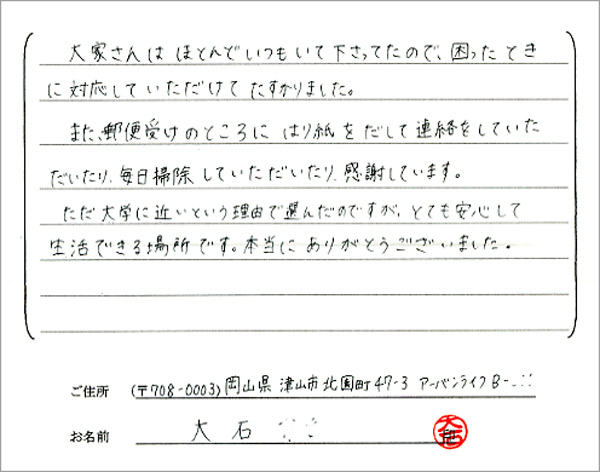 大家さんは ほとんどいつもいて下さってたので、困ったとき
に対応していただけて たすかりました。
また、郵便受けのところに はり紙をだして連絡をしていた
だいたり、毎日掃除していただいたり、感謝しています。
ただ大学に近いという理由で選んだのですが、とても安心して
生活できる場所です。本当に ありがとうございました。
ご住所 (〒708-0003) 岡山県 津山市 北園町 47-3 アーバンライフB-
お名前 大石